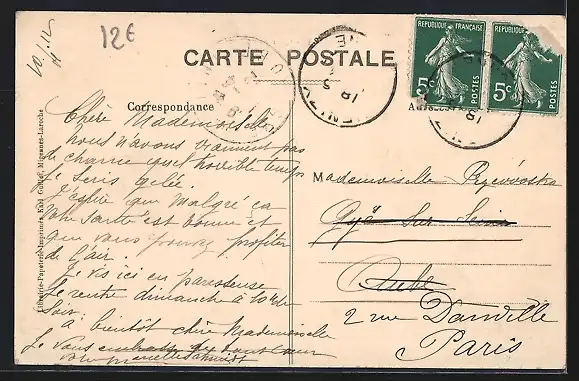 12€
CARTE POSTALE
RÉPUBLIQUE FRANÇAISE
5c POSTES
RÉPUBLIQUE
5c POSTES
Correspondance
Chère Mademoiselle
Nous n'avons vraiment pas
de chance quel horrible temps
Je suis gelée.
J'espère que malgré ça
votre santé est bonne et
que vous pouvez profiter
de l'air.
Je vis ici en paresseuse
Je rentre dimanche à 10h du
soir.
à bientôt chère Mademoiselle
Je vous embrasse de tout cœur
Mademoiselle
Gyé sur Seine
Aube
2 rue Danville
Paris
Librairie-Papeterie-Imprimés, Migennes-Laroche